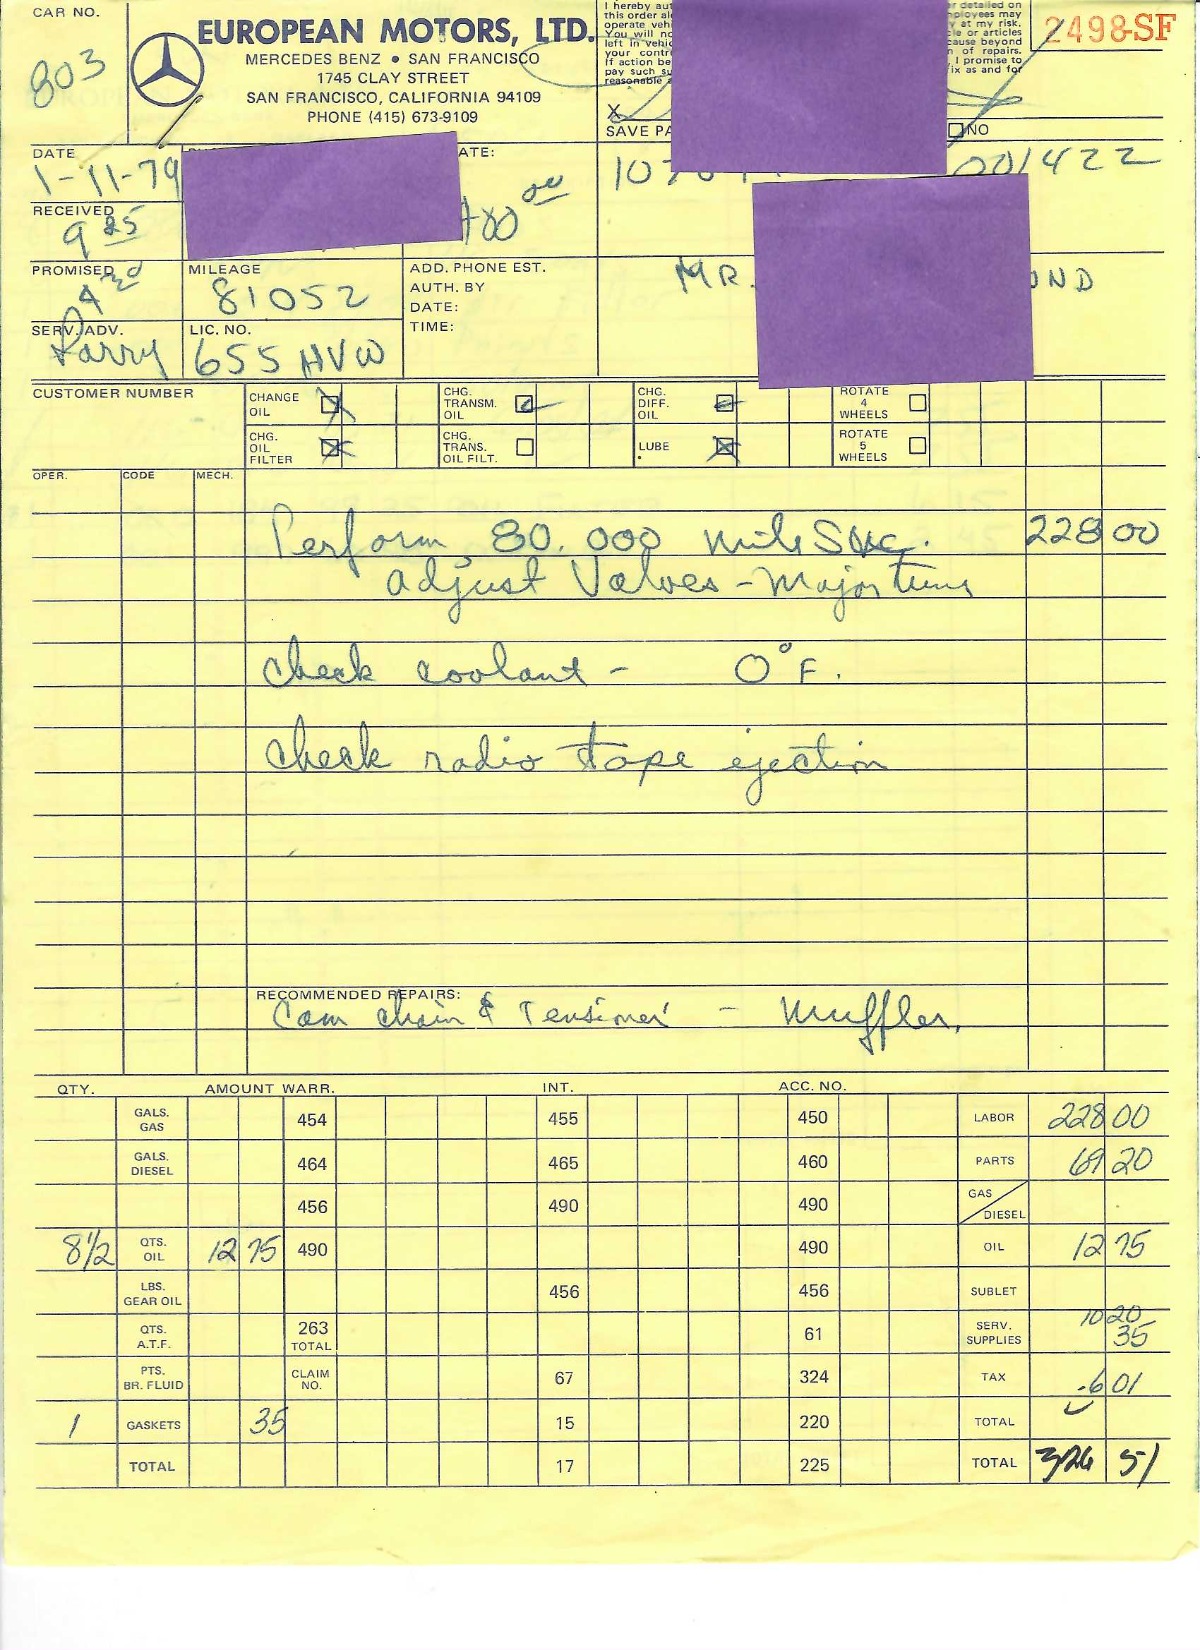 CAR NO.
803
EUROPEAN MOTORS, LTD.
MERCEDES BENZ • SAN FRANCISCO
1745 CLAY STREET
SAN FRANCISCO, CALIFORNIA 94109
PHONE (415) 673-9109
I hereby aut
this order al
operate vehi
You will no
left in vehic
your contr
If action be
pay such su
reasonable
r detailed on
ployees may
y at my risk.
le or articles
cause beyond
of repairs.
I promise to
fix as and for
2498-SF
X
SAVE PA
NO
DATE
1-11-79
ATE:
001422
RECEIVED
9 25
PROMISED
MILEAGE
81052
ADD. PHONE EST.
AUTH. BY
DATE:
TIME:
MR.
OND
SERV. ADV.
LIC. NO.
655 HVW
CUSTOMER NUMBER
CHANGE OIL
CHG. TRANSM. OIL
CHG. DIFF. OIL
ROTATE 4 WHEELS
CHG. OIL FILTER
CHG. TRANS. OIL FILT.
LUBE
ROTATE 5 WHEELS
OPER. CODE MECH.
Perform 80.000 mile Svc. 228 00
adjust Valves - Major tune
check coolant - 0°F.
check radio tape ejection
RECOMMENDED REPAIRS:
Cam chain & Tensioner - Muffler.
QTY. AMOUNT WARR. INT. ACC. NO.
GALS. GAS 454 455 450 LABOR 228 00
GALS. DIESEL 464 465 460 PARTS 69 20
456 490 490 GAS / DIESEL
8 1/2 QTS. OIL 12 75 490 490 OIL 12 75
LBS. GEAR OIL 456 456 SUBLET
QTS. A.T.F. 263 TOTAL 61 SERV. SUPPLIES 10 20 35
PTS. BR. FLUID CLAIM NO. 67 324 TAX 6 01
1 GASKETS 35 15 220 TOTAL
TOTAL 17 225 TOTAL 326 51